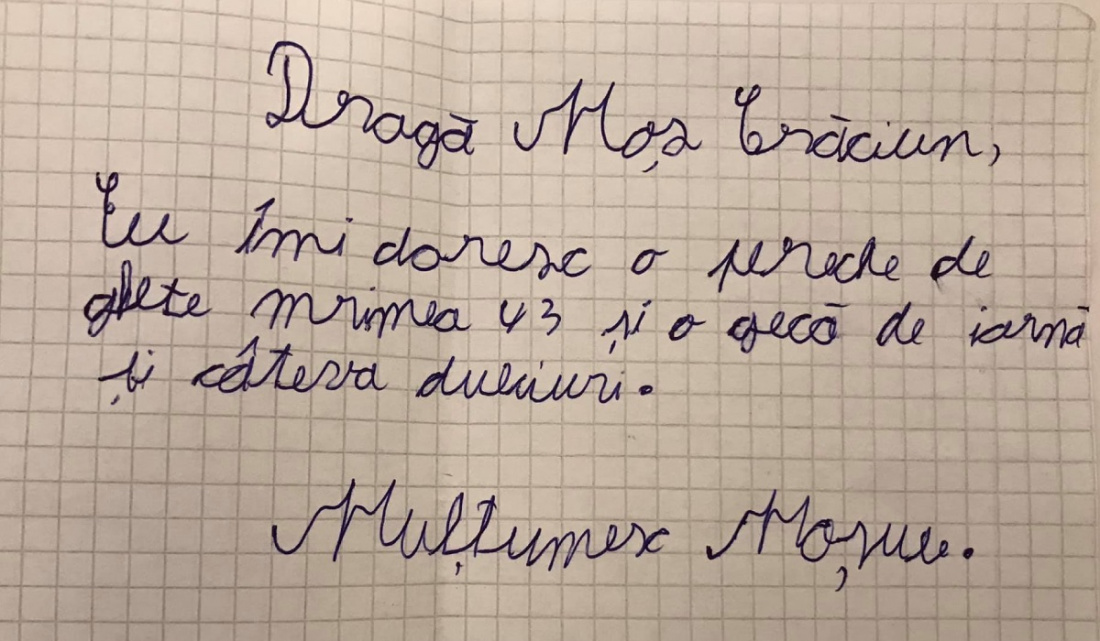 Dragă Moș Crăciun,
Eu îmi doresc o pereche de
ghete mrimea 43 și o gecă de iarnă
și câteva dulciuri.
Mulțumesc Moșule.